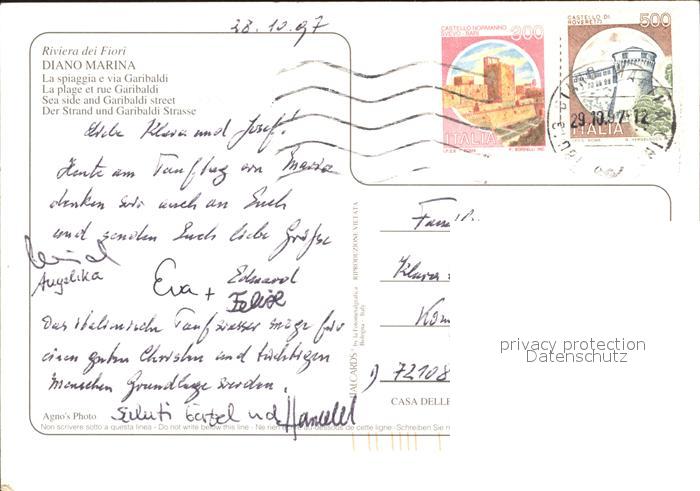 28.10.97
Riviera dei Fiori
DIANO MARINA
La spiaggia e via Garibaldi
La plage et rue Garibaldi
Sea side and Garibaldi street
Der Strand und Garibaldi Strasse
CASTELLO NORMANNO
SVEVO - BARI
300
ITALIA
CASTELLO DI
ROVERETO
500
ITALIA
29.10.97-12
Liebe Klara und Josef!
Heute am Tauftag von
denken wir auch an Euch
und senden Euch liebe Grüße
Angelika
Eva + Eduard
Felix
Das italienische Taufwasser möge für
einen guten Christen und tüchtigen
Menschen Grundlage werden.
Saluti
Agno's Photo
Non scrivere sotto a questa linea - Do not write below this line - Ne rien écrire au-dessous de cette ligne - Bitte nicht
by la Fotometalgrafica
Bologna - Italy
RIPRODUZIONE VIETATA
Fam
Klara
D 72108
CASA DELLE
privacy protection
Datenschutz